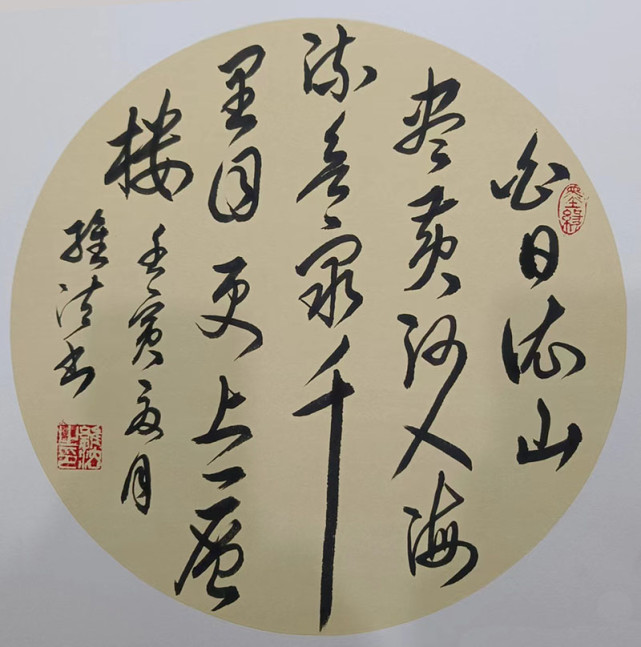 白日依山
尽黄河入海
流欲穷千
里目更上一层
楼壬寅夏月
维清书